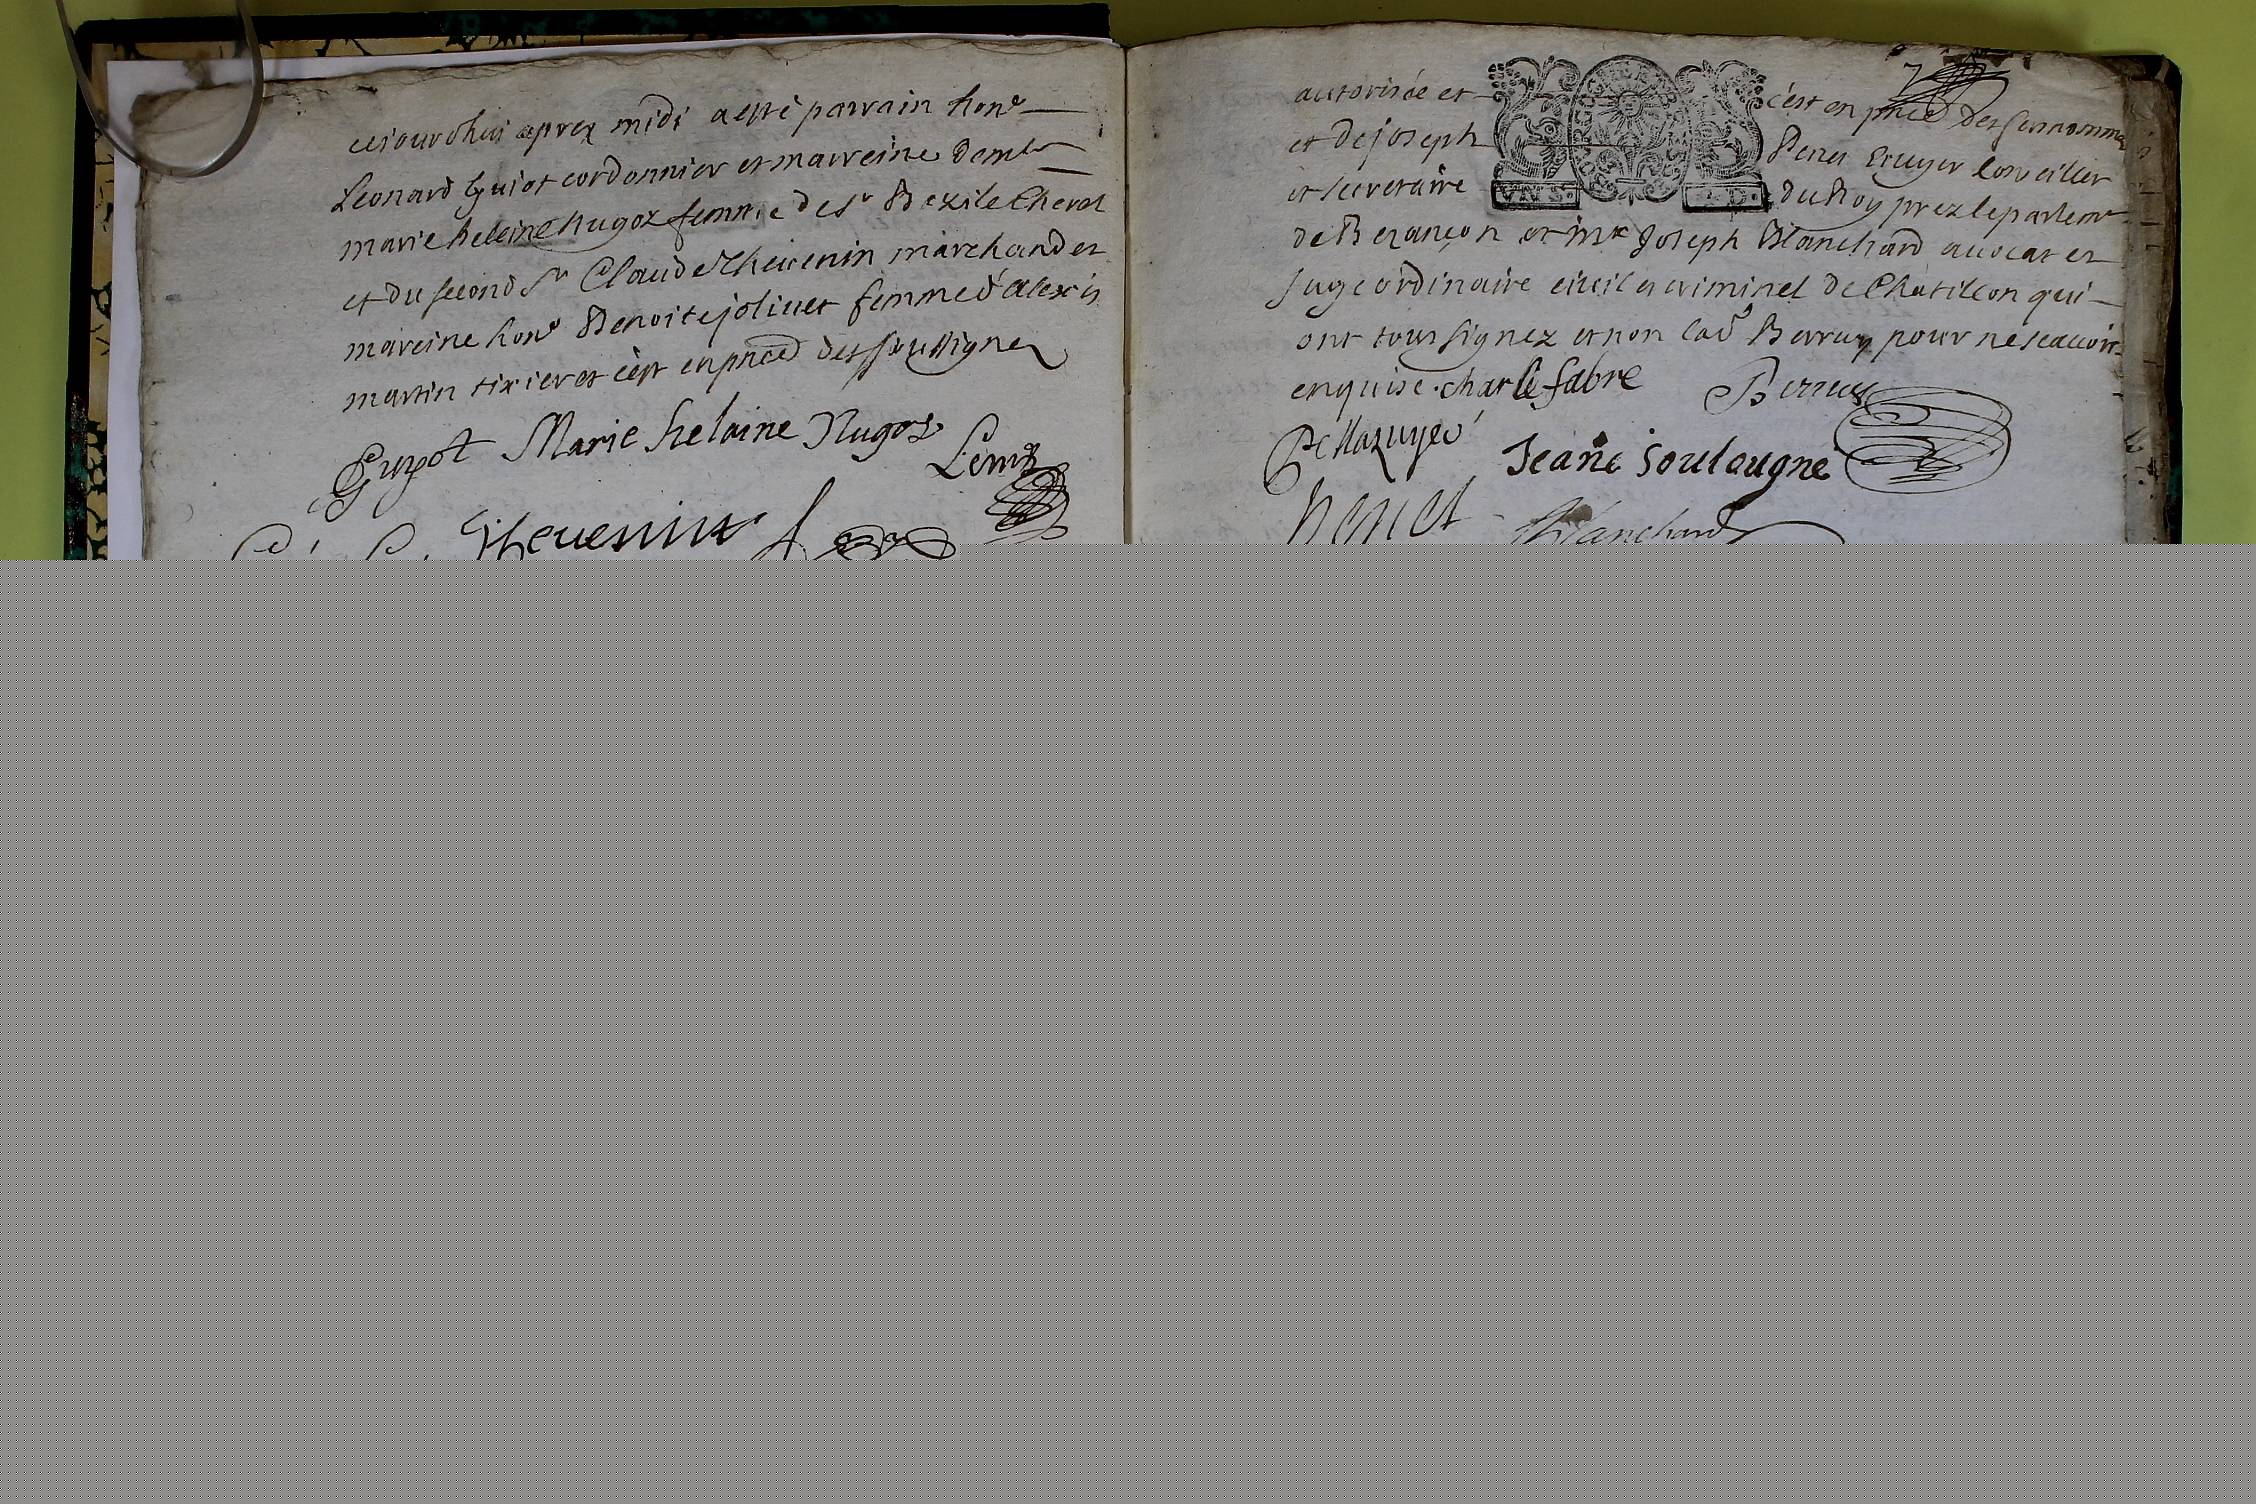 cejourdhui aprez midi a esté parrain hon.e
Leonard Guiot cordonnier et marreine dem.le
marie heleine Nugoz femme de s.r Bezile Cheval
et du second s.r Claude Thevenin marchand et
mareine hon.e Benoite jolivet femme d'alexis
martin tixier et c'est en pnce des soussignez
Guyot Marie helaine Nugoz
Thevenin
7
autorisée et c'est en pnce des surnommez
et de joseph Benet Ecuyer Conseiller
et secretaire du Roy prez le parlem.t
de Bezançon et M.re Joseph Blanchard avocat et
Juge ordinaire civil et criminel de Chatillon qui
ont tous signez et non lad. Berruy pour ne scavoir
enquise. charle fabre Berruy
De Mazuyer Jeane Soulougne
Benet Blanchard